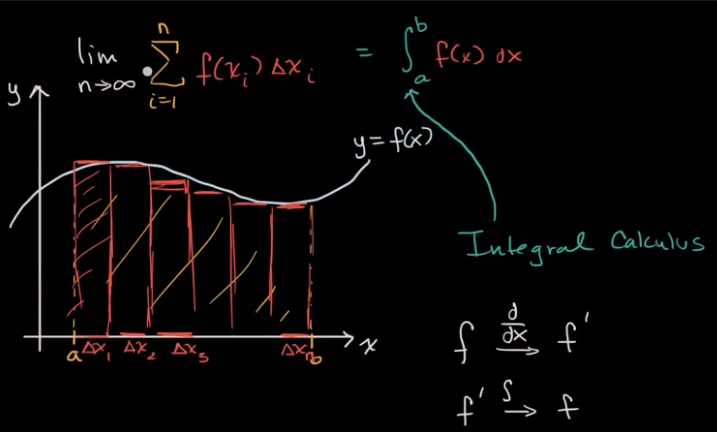 lim n→∞ Σ i=1 n f(xᵢ) Δxᵢ = ∫ₐᵇ f(x) dx
y
y = f(x)
Integral Calculus
a Δx₁ Δx₂ Δx₃ Δxₙ b x
f d/dx → f'
f' ∫ → f